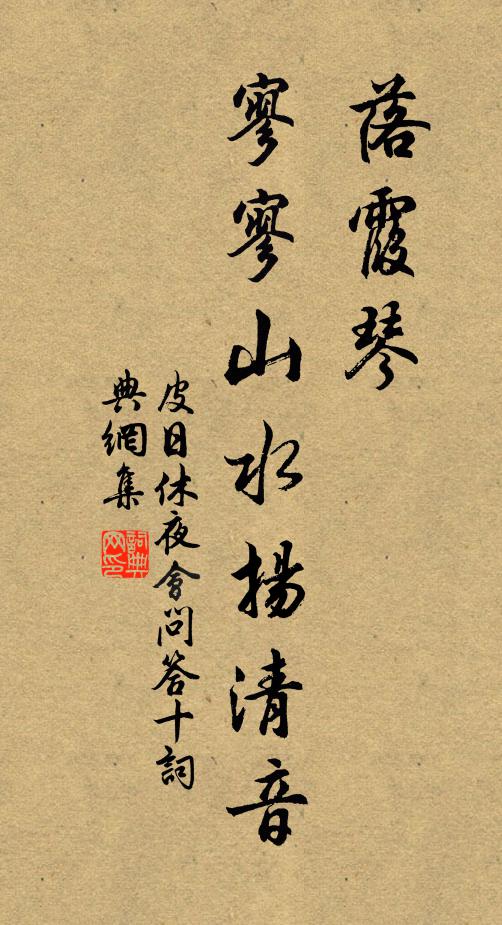 落霞琴
寥寥山水揚清音
皮日休夜會問答十詞
典網集
詞典
网印